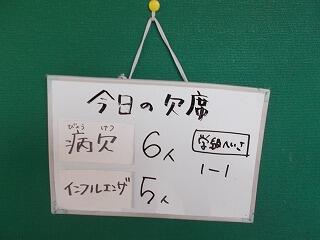 今日の欠席
びょう けつ
病欠 6人
学級へいさ
1-1
インフルエンザ 5人